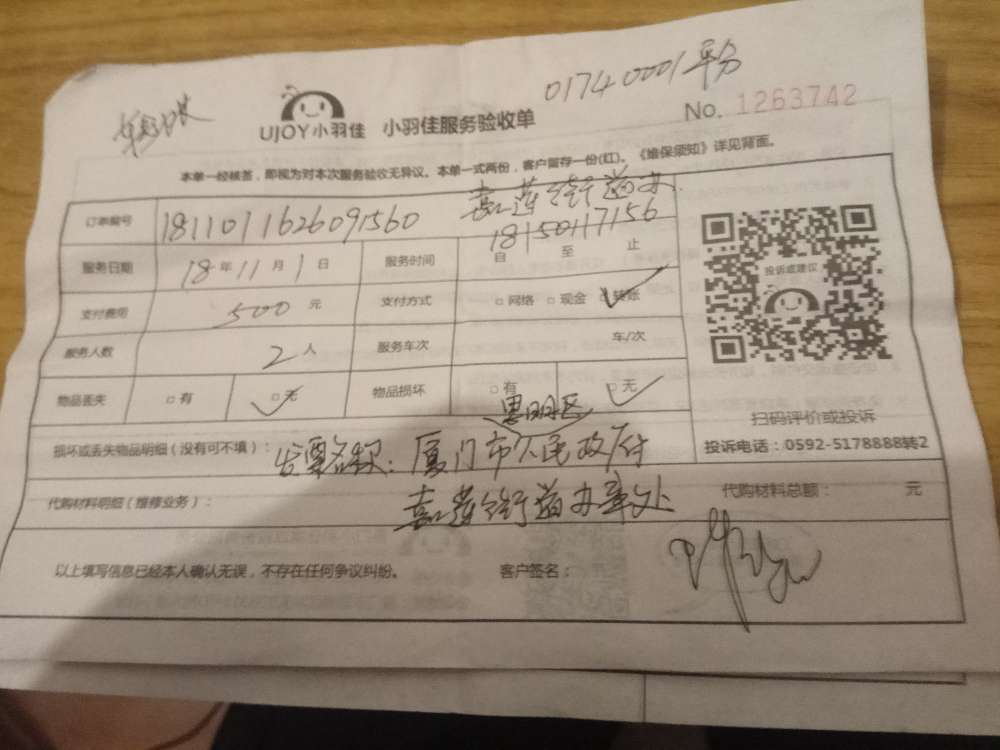 01740001平分
UJOY小羽佳 小羽佳服务验收单 No. 1263742
本单一经核签，即视为对本次服务验收无异议。本单一式两份，客户留存一份(红)。《维保须知》详见背面。
嘉莲街道办
订单编号 1811011626091560 18150117156
服务日期 18年11月1日 服务时间 自 至 止
投诉或建议
支付费用 500元 支付方式 □网络 □现金 转账
服务人数 2人 服务车次 车/次
物品丢失 □有 □无 物品损坏 □有 □无
扫码评价或投诉
思明区
损坏或丢失物品明细（没有可不填）： 发票名称：厦门市人民政府
投诉电话：0592-5178888转2
嘉莲街道办事处
代购材料明细（维修业务）： 代购材料总额： 元
以上填写信息已经本人确认无误，不存在任何争议纠纷。 客户签名：